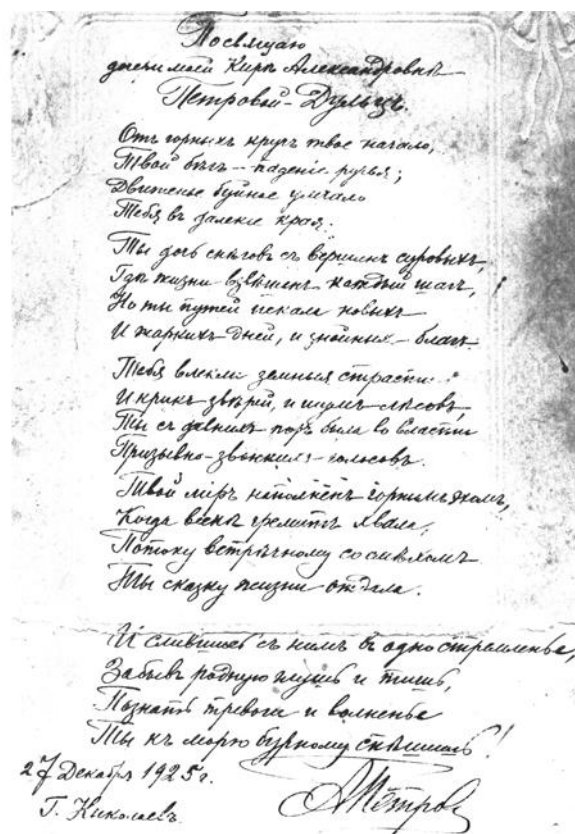 Посвящаю
дочери моей Кирѣ Александровнѣ
Петровой-Дульцъ.
Отъ горныхъ кручъ твое начало,
Твой бѣгъ – паденіе ручья;
Движенье буйное умчало
Тебя въ далекіе края.
Ты дочь снѣговъ съ вершинъ суровыхъ,
Гдѣ жизни взвѣшенъ каждый шагъ,
Но ты путей искала новыхъ
И жаркихъ дней, и знойныхъ – благъ.
Тебя влекли земныя страсти:
И крикъ звѣрей, и шумъ лѣсовъ,
Ты съ давнихъ поръ была во власти
Призывно-звонкихъ – голосовъ.
Твой міръ наполненъ горнымъ эхомъ,
Когда веснѣ гремитъ хвала,
Потоку встрѣчному со смѣхомъ
Ты сказку жизни – отдала.
И слившись съ нимъ въ одно стремленье,
Забывъ родную глушь и тишь,
Познать тревоги и волненье
Ты къ морю бурному спѣшишь!
27 Декабря 1925 г.
Г. Николаевъ.
АПетров